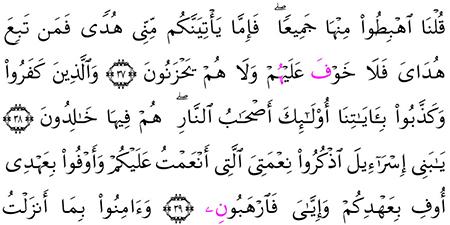 قُلْنَا ٱهْبِطُوا۟ مِنْهَا جَمِيعًا ۖ فَإِمَّا يَأْتِيَنَّكُم مِّنِّى هُدًى فَمَن تَبِعَ
هُدَاىَ فَلَا خَوْفَ عَلَيْهُمْ وَلَا هُمْ يَحْزَنُونَ ﴿٣٧﴾ وَٱلَّذِينَ كَفَرُوا۟
وَكَذَّبُوا۟ بِـَٔايَـٰتِنَا أُو۟لَـٰٓئِكَ أَصْحَـٰبُ ٱلنَّارِ ۖ هُمْ فِيهَا خَـٰلِدُونَ ﴿٣٨﴾
يَـٰبَنِى إِسْرَٰٓءِيلَ ٱذْكُرُوا۟ نِعْمَتِىَ ٱلَّتِى أَنْعَمْتُ عَلَيْكُمْ وَأَوْفُوا۟ بِعَهْدِى
أُوفِ بِعَهْدِكُمْ وَإِيَّـٰىَ فَٱرْهَبُونِۦ ﴿٣٩﴾ وَءَامِنُوا۟ بِمَا أَنزَلْتُ